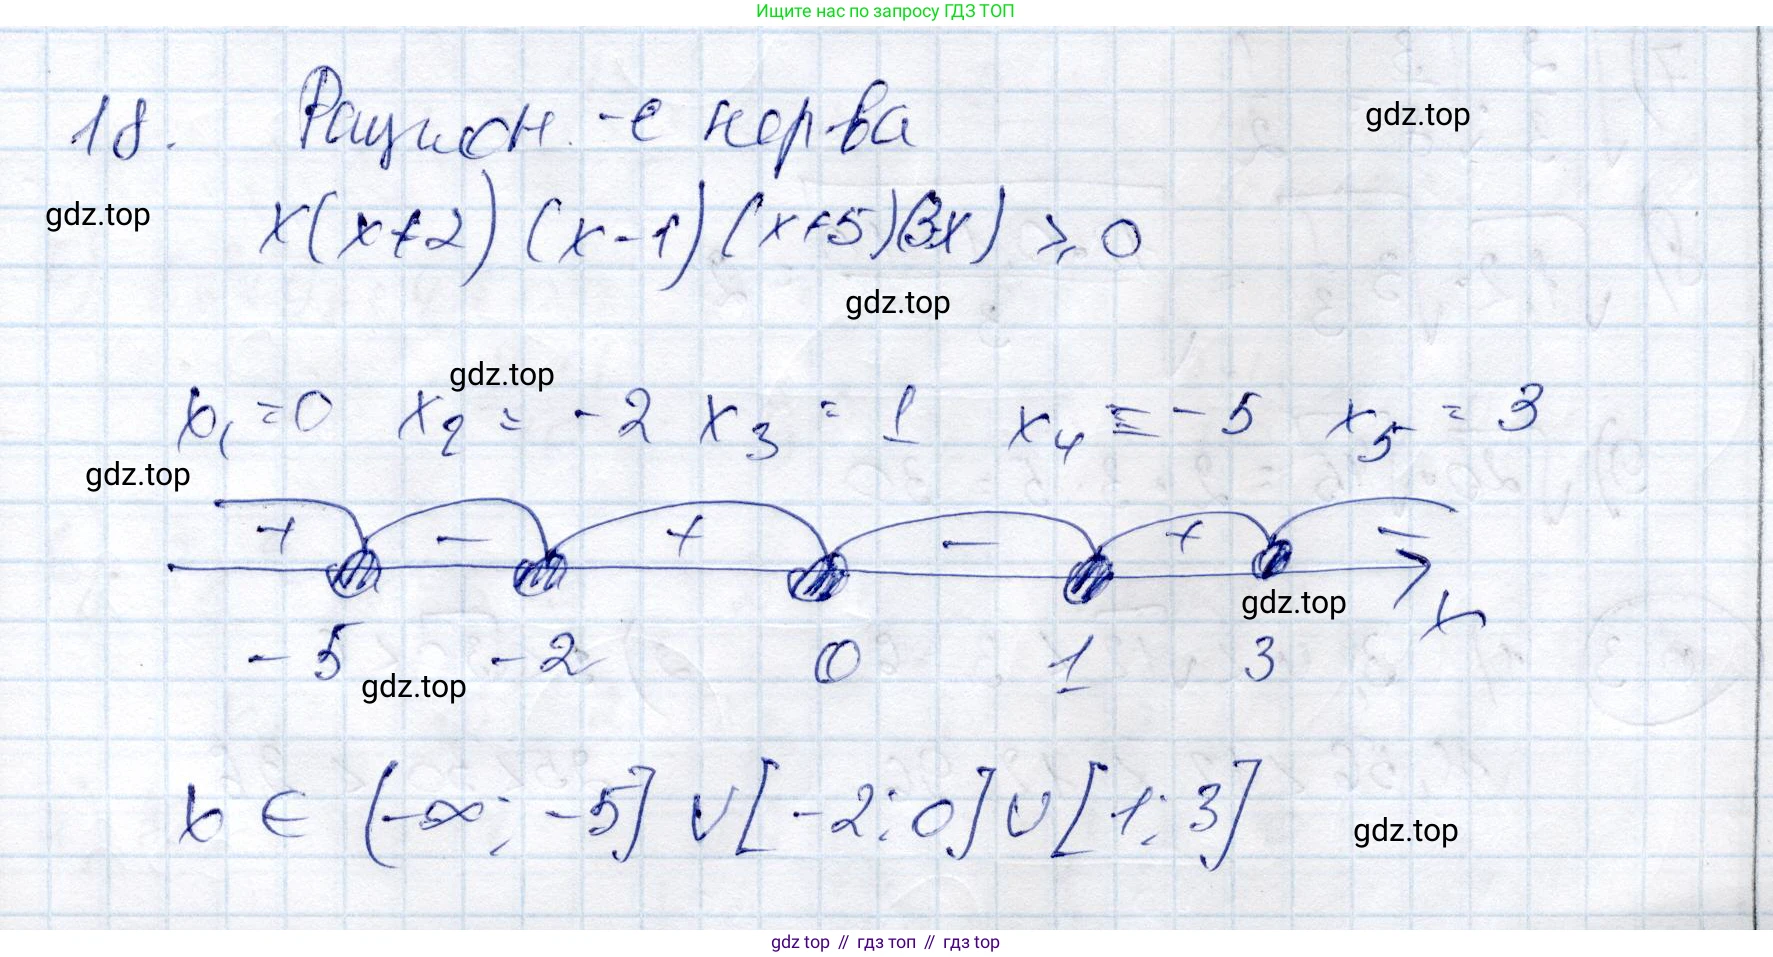 Ищите нас по запросу ГДЗ ТОП
18. Рацион.-е нер-ва
gdz.top
gdz.top
x(x+2)(x-1)(x+5)(3-x) ⩾ 0
gdz.top
gdz.top
x₁ = 0 x₂ = -2 x₃ = 1 x₄ = -5 x₅ = 3
gdz.top
+ - + - + -
gdz.top
x
-5 -2 0 1 3
gdz.top
x ∈ (-∞; -5] ∪ [-2; 0] ∪ [1; 3]
gdz.top
gdz top // гдз топ // гдз top